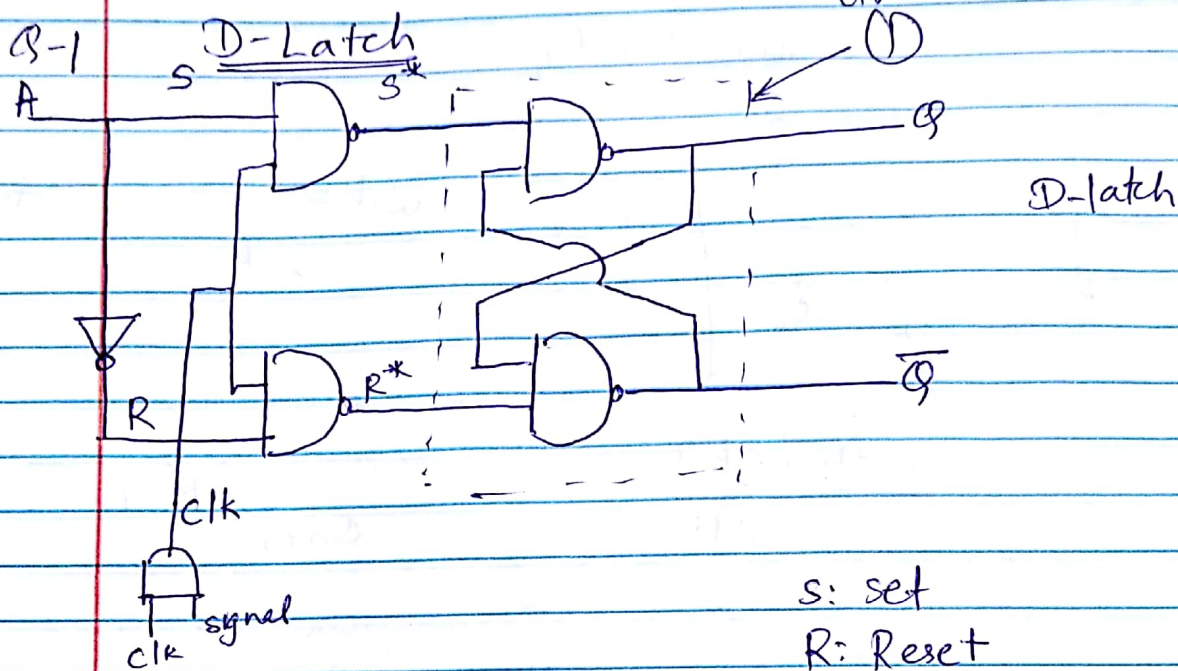 Q-1 D-Latch
①
A S S*
Q
D-latch
R R*
Q̅
clk
signal
clk
S: set
R: Reset